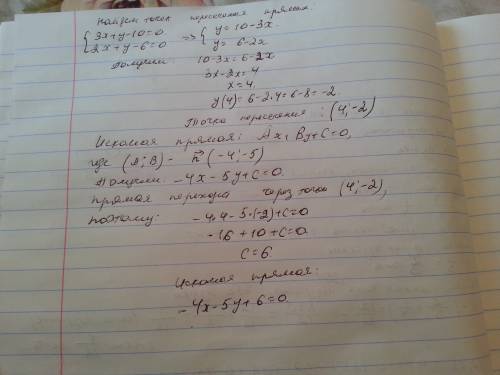 Найдем точку пересечения прямых:
{ 3x+y-10=0 => { y=10-3x
{ 2x+y-6=0 { y=6-2x
Получим: 10-3x=6-2x
3x-2x=4
x=4
y(4)=6-2·4=6-8=-2.
Точка пересечения: (4;-2)
Искомая прямая: Ax+By+C=0,
где (A;B) - n⃗(-4;-5)
Получим: -4x-5y+C=0.
Прямая проходит через точку (4;-2),
поэтому: -4·4-5·(-2)+C=0
-16+10+C=0
C=6.
Искомая прямая:
-4x-5y+6=0.